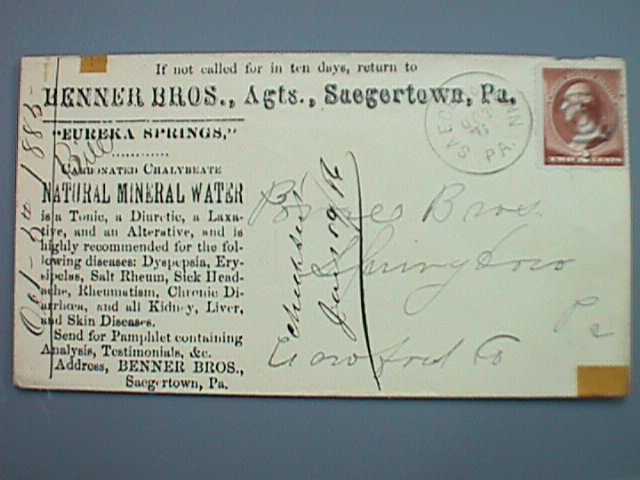 If not called for in ten days, return to
BENNER BROS., Agts., Saegertown, Pa.
"EUREKA SPRINGS,"
CARBONATED CHALYBEATE
NATURAL MINERAL WATER
is a Tonic, a Diuretic, a Laxa-
tive, and an Alterative, and is
highly recommended for the fol-
lowing diseases: Dyspepsia, Ery-
sipelas, Salt Rheum, Sick Head-
ache, Rheumatism, Chronic Di-
arrhœa, and all Kidney, Liver,
and Skin Diseases.
Send for Pamphlet containing
Analysis, Testimonials, &c.
Address, BENNER BROS.,
Saegertown, Pa.
Oct 1885
Bill
Jan 19
SAEGERTOWN
OCT
PA.
TWO CENTS
Bros.
Springboro
Crawford Co
Pa